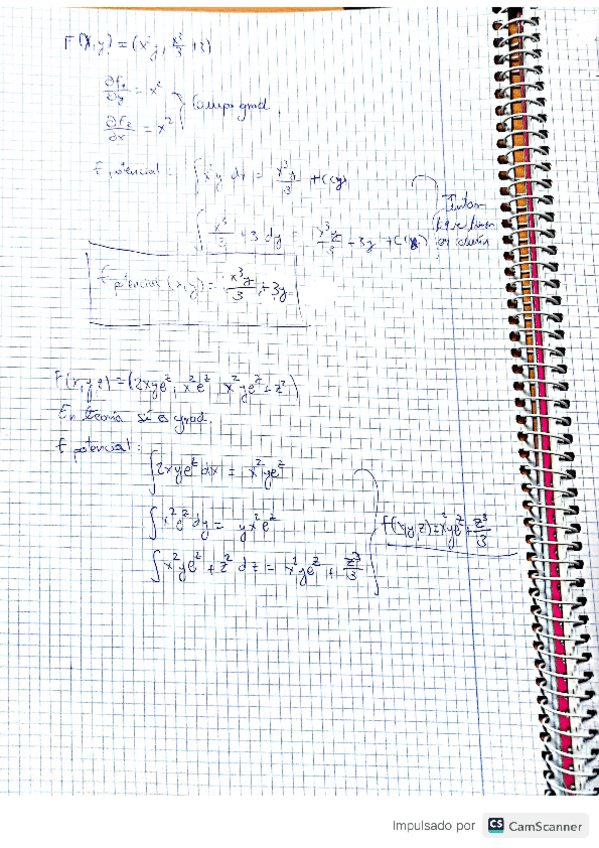 F(x,y) = (x²y, x³/3 + 3)
∂F₁/∂y = x²
∂F₂/∂x = x² } Campo grad.
F potencial: ∫x²y dx = x³y/3 + C(y)
∫ x³/3 + 3 dy = x³y/3 + 3y + C(x)
F potencial (x,y) = x³y/3 + 3y
F(x,y,z) = (2xye^z, x²e^z, x²ye^z + z²)
En teoría sí es grad.
F potencial:
∫2xye^z dx = x²ye^z
∫x²e^z dy = yx²e^z
f(x,y,z) = x²ye^z + z³/3
∫x²ye^z + z² dz = x²ye^z + z³/3
Impulsado por CS CamScanner